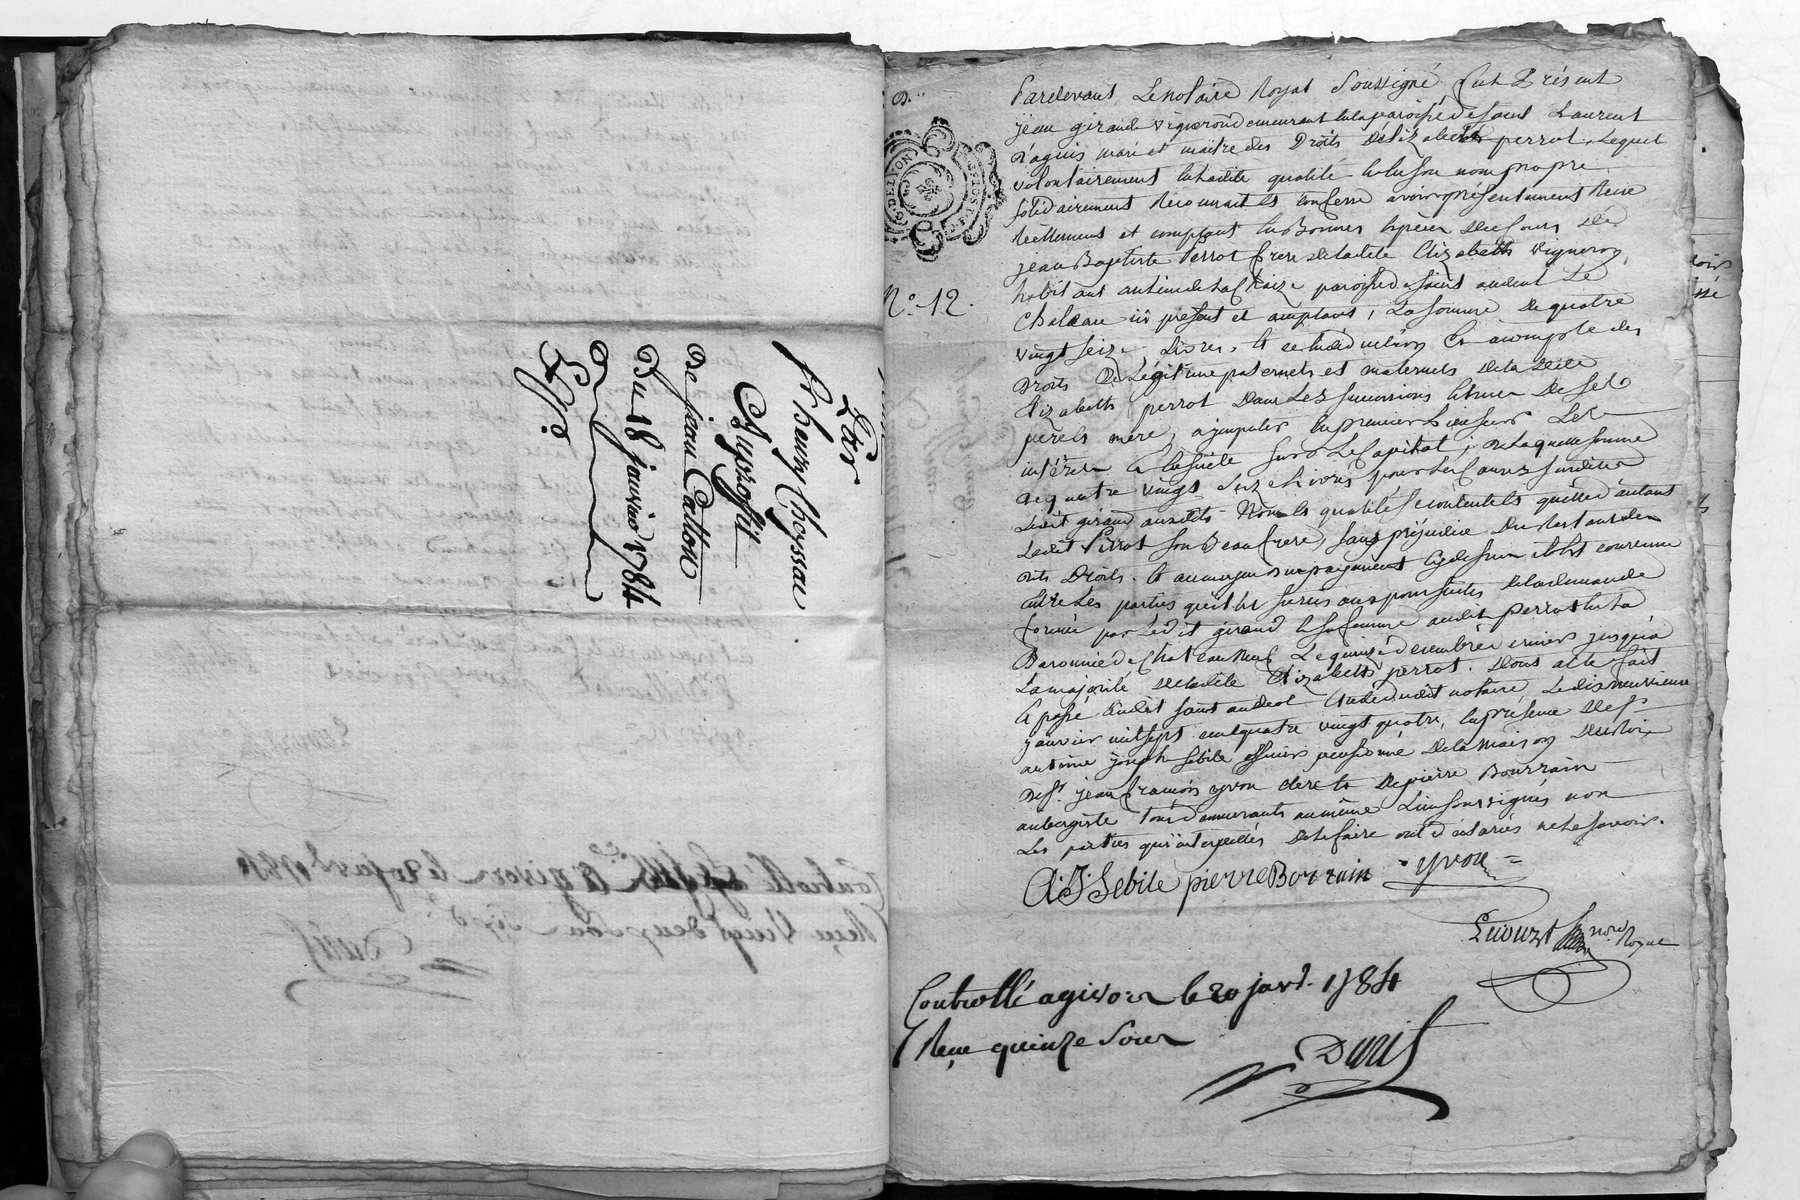 Par
h henry Choyssae
Au profit
De jean Catton
Du 18 janvier 1784
No. 12.
Pardevant Le notaire Royal Soussigné fut Présent
jean giraud vigneron demeurant en la paroisse de saint Laurent
d'agnis mari et maitre des Droits de Elizabeth perrot, Lequel
volontairement en ladite qualité et en son nom propre
solidairement Reconnait et confesse avoir présentement Receu
Réellement et comptant en Bonnes espèces De cours De
jean Baptiste Perrot frere de ladite Elizabeth vigneron
habitant au lieu de la Chaize paroisse de saint andeol Le
Chateau ici présent et acceptant, La somme De quatre
vingt seize Livres, et ce en déduction Et acompte des
Droits De Legitime paternels et maternels de la dite
Elizabeth perrot Dans Les successions et biens De ses
père et mère, a imputer en premier Lieu sur Les
intérêts et ensuite sur Le Capital; De laquelle somme
de quatre vingt seize Livres pour Les Causes susdites
Ledit giraud auxdits Noms et qualités se contente et quitte d'autant
Ledit Perrot son Beau frere, sans préjudice Du Restant des
dits Droits. et au moyen du payement cy dessus il est convenu
entre Les parties qu'il est sursis aux poursuites et a la demande
formée par Ledit giraud et sa femme audit Perrot en la
Baronnie de Chateauneuf Le quinze décembre dernier jusqu'a
La majorité de ladite Elizabeth perrot. Dont acte fait
et passé audit saint andeol Etude dudit notaire, Le dix neuvieme
janvier mil sept cent quatre vingt quatre, en présence De sr
antoine joseph sebile officier pensionné De la Maison Du Roi
De sr. jean francois yvon clerc et De pierre Bourrain
aubergiste Tous demeurants au même Lieu soussignés non
Les parties qui interpellés De le faire ont déclaré ne le savoir.
A. J. Sebile pierre Borrain yvon
nore Royal
Controllé a givors le 20 janv. 1784
Reçu quinze sous
Duris